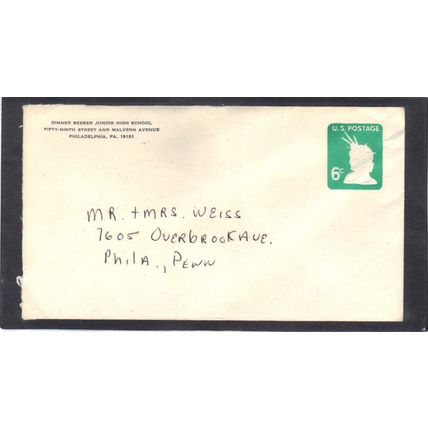 DIMNER BEEBER JUNIOR HIGH SCHOOL
FIFTY-NINTH STREET AND MALVERN AVENUE
PHILADELPHIA, PA. 19131
U.S. POSTAGE
6c
MR. + MRS. WEISS
7605 OVERBROOK AVE.
PHILA., PENN